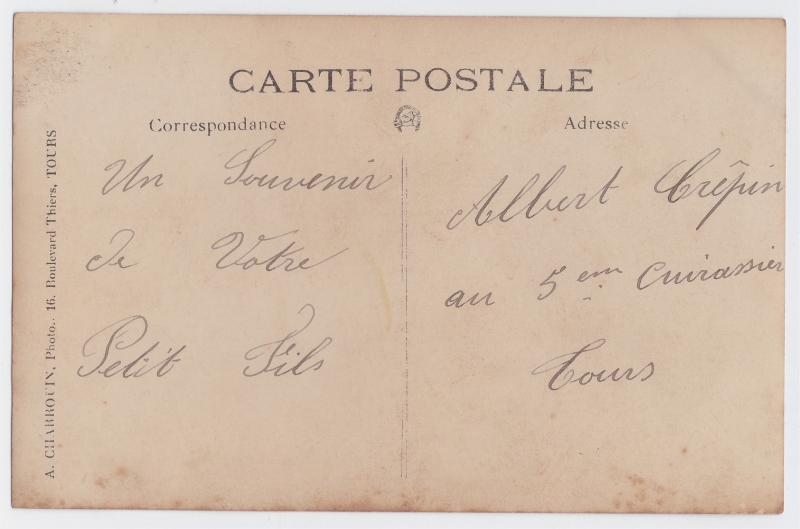 CARTE POSTALE
Correspondance
Adresse
Un Souvenir
de Votre
Petit Fils
Albert Crêpin
au 5 em Cuirassier
Tours
A. CHARROUIN, Photo., 16, Boulevard Thiers, TOURS